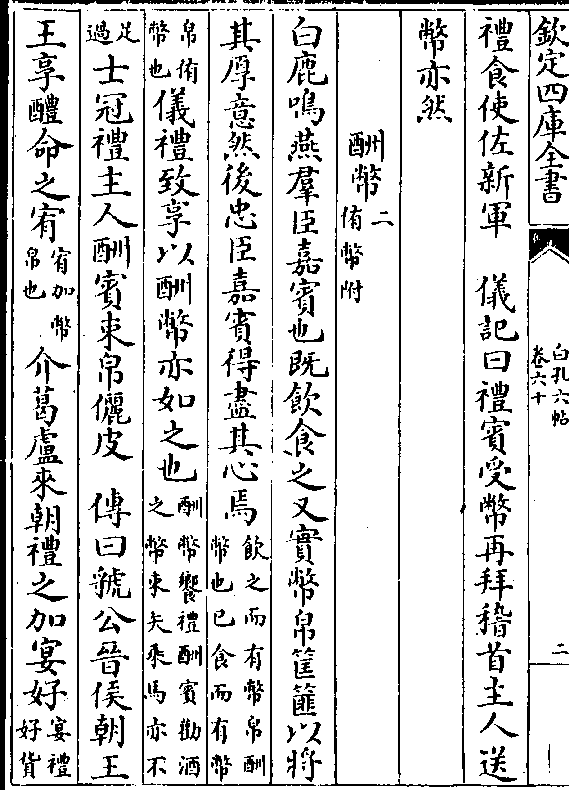 欽定四庫全書
白孔六帖
卷六十
二
禮食使佐新軍　儀記曰禮賓受幣再拜稽首主人送
幣亦然
酬幣二侑幣附
白鹿鳴燕羣臣嘉賓也既飲食之又實幣帛筐篚以將
其厚意然後忠臣嘉賓得盡其心焉飲之而有幣帛酬幣也已食而有幣
帛侑幣也儀禮致享以酬幣亦如之也酬幣饗禮酬賓勸酒之幣束矢乘馬亦不
足過士冠禮主人酬賓束帛儷皮　傳曰虢公晉侯朝王
王享醴命之宥宥加幣帛也介葛盧來朝禮之加宴好宴禮好貨